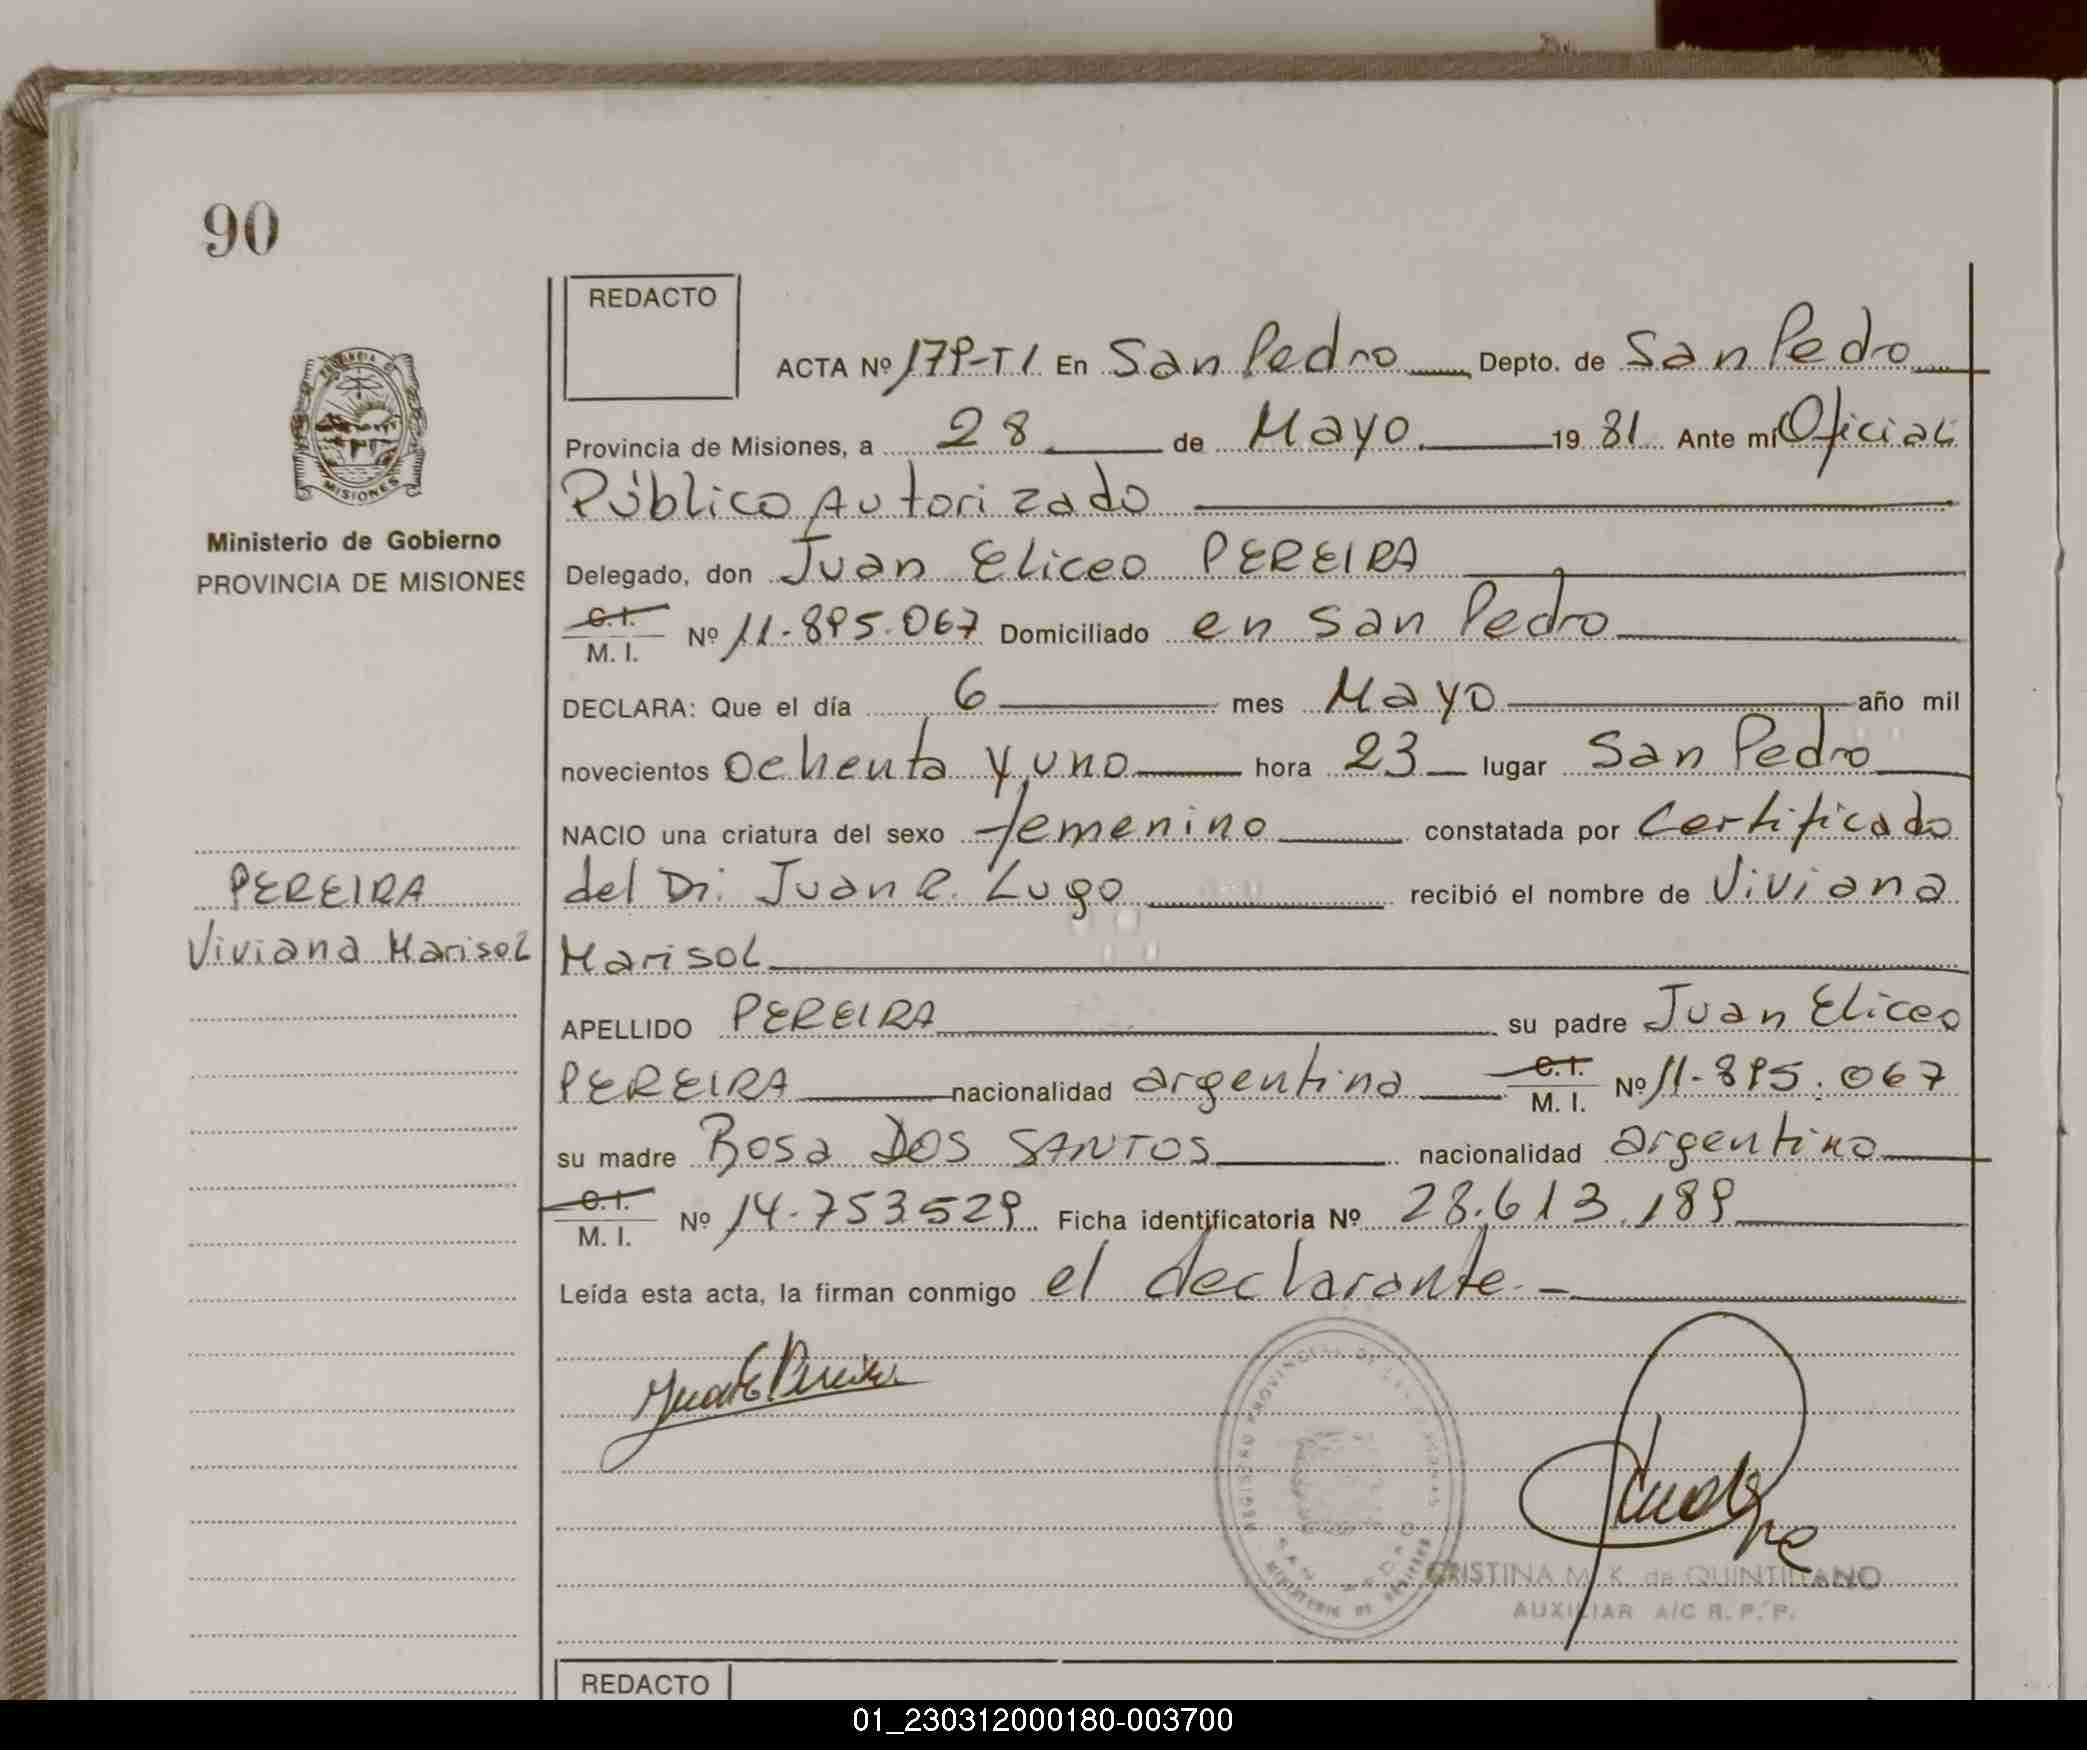 90
REDACTO
ACTA Nº 179-T1 En San Pedro Depto. de San Pedro
Provincia de Misiones, a 28 de Mayo 19 81 Ante mí Oficial
Público Autorizado
Delegado, don Juan Eliceo PEREIRA
C.I. M. I. Nº 11-895.067 Domiciliado en San Pedro
DECLARA: Que el día 6 mes Mayo año mil
novecientos Ochenta y uno hora 23 lugar San Pedro
NACIO una criatura del sexo femenino constatada por Certificado
del Dr. Juan R. Lugo recibió el nombre de Viviana
Marisol
APELLIDO PEREIRA su padre Juan Eliceo
PEREIRA nacionalidad argentina C.I. M. I. Nº 11-895.067
su madre Rosa DOS SANTOS nacionalidad argentina
C.I. M. I. Nº 14-753.529 Ficha identificatoria Nº 28.613.189
Leída esta acta, la firman conmigo el declarante.-
MISIONES
Ministerio de Gobierno
PROVINCIA DE MISIONES
PEREIRA
Viviana Marisol
Juan E Pereira
REGISTRO PROVINCIAL DE LAS PERSONAS
SAN PEDRO
MINISTERIO DE GOBIERNO
CRISTINA M. K. de QUINTILLANO
AUXILIAR A/C R. P. P.
REDACTO
01_230312000180-003700